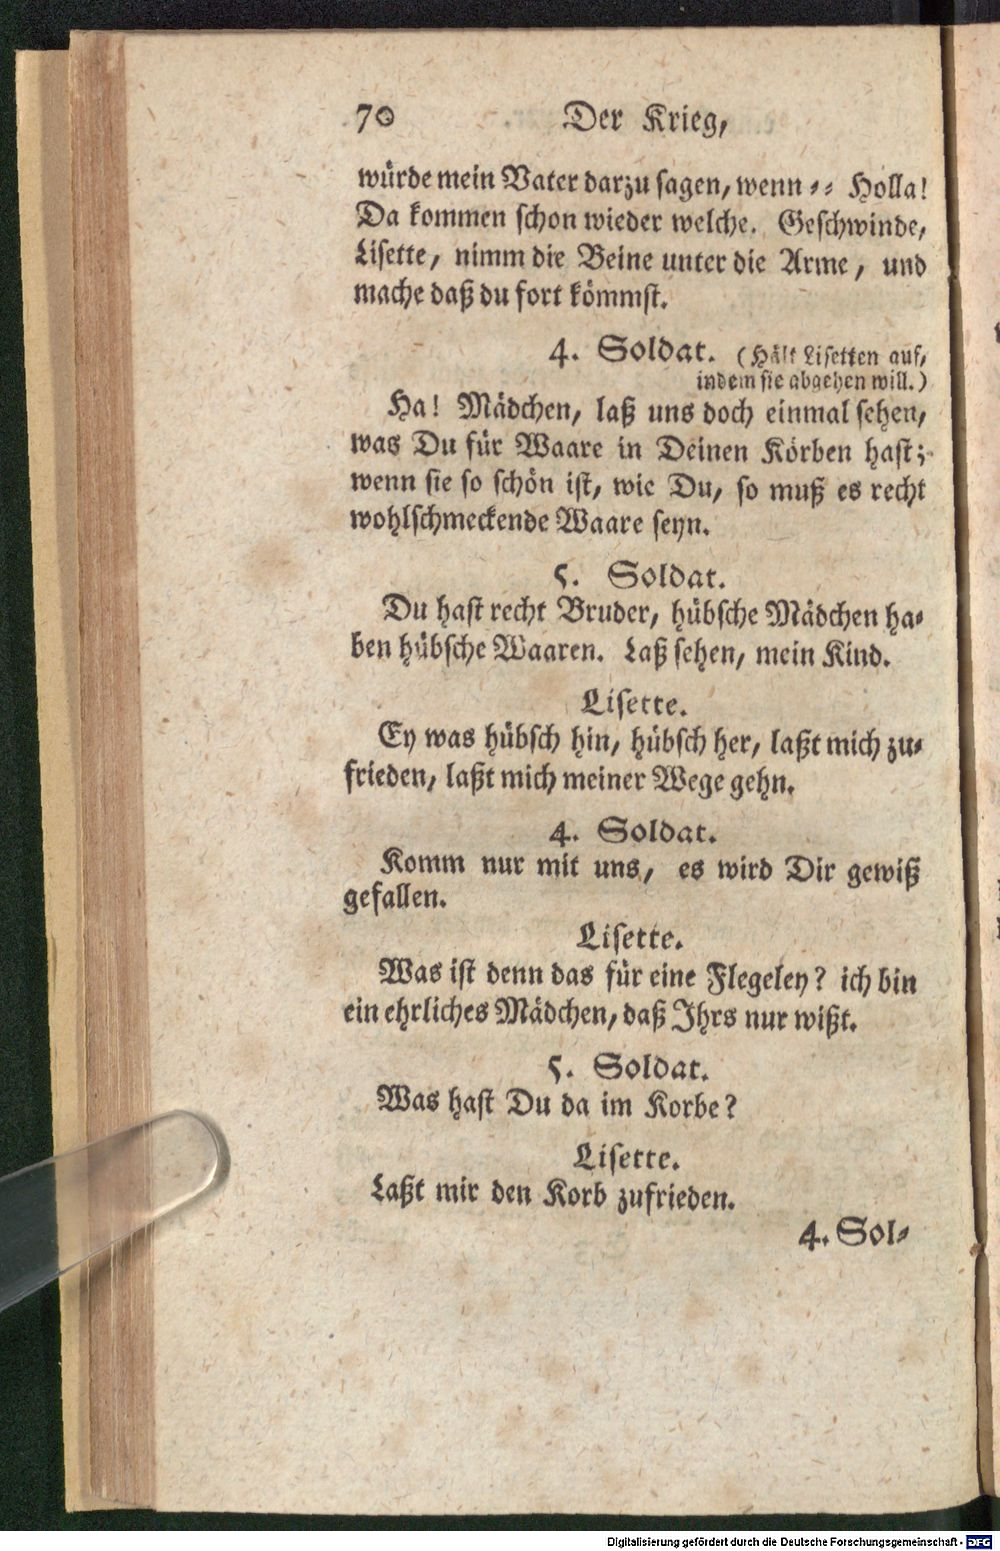 70 Der Krieg,
würde mein Vater darzu sagen, wenn ⸗⸗ Holla!
Da kommen schon wieder welche. Geschwinde,
Lisette, nimm die Beine unter die Arme, und
mache daß du fort kömmst.
4. Soldat. (Hält Lisetten auf,
indem sie abgehen will.)
Ha! Mädchen, laß uns doch einmal sehen,
was Du für Waare in Deinen Körben hast;
wenn sie so schön ist, wie Du, so muß es recht
wohlschmeckende Waare seyn.
5. Soldat.
Du hast recht Bruder, hübsche Mädchen ha⸗
ben hübsche Waaren. Laß sehen, mein Kind.
Lisette.
Ey was hübsch hin, hübsch her, laßt mich zu⸗
frieden, laßt mich meiner Wege gehn.
4. Soldat.
Komm nur mit uns, es wird Dir gewiß
gefallen.
Lisette.
Was ist denn das für eine Flegeley? ich bin
ein ehrliches Mädchen, daß Ihrs nur wißt.
5. Soldat.
Was hast Du da im Korbe?
Lisette.
Laßt mir den Korb zufrieden.
4. Sol⸗
Digitalisierung gefördert durch die Deutsche Forschungsgemeinschaft - DFG